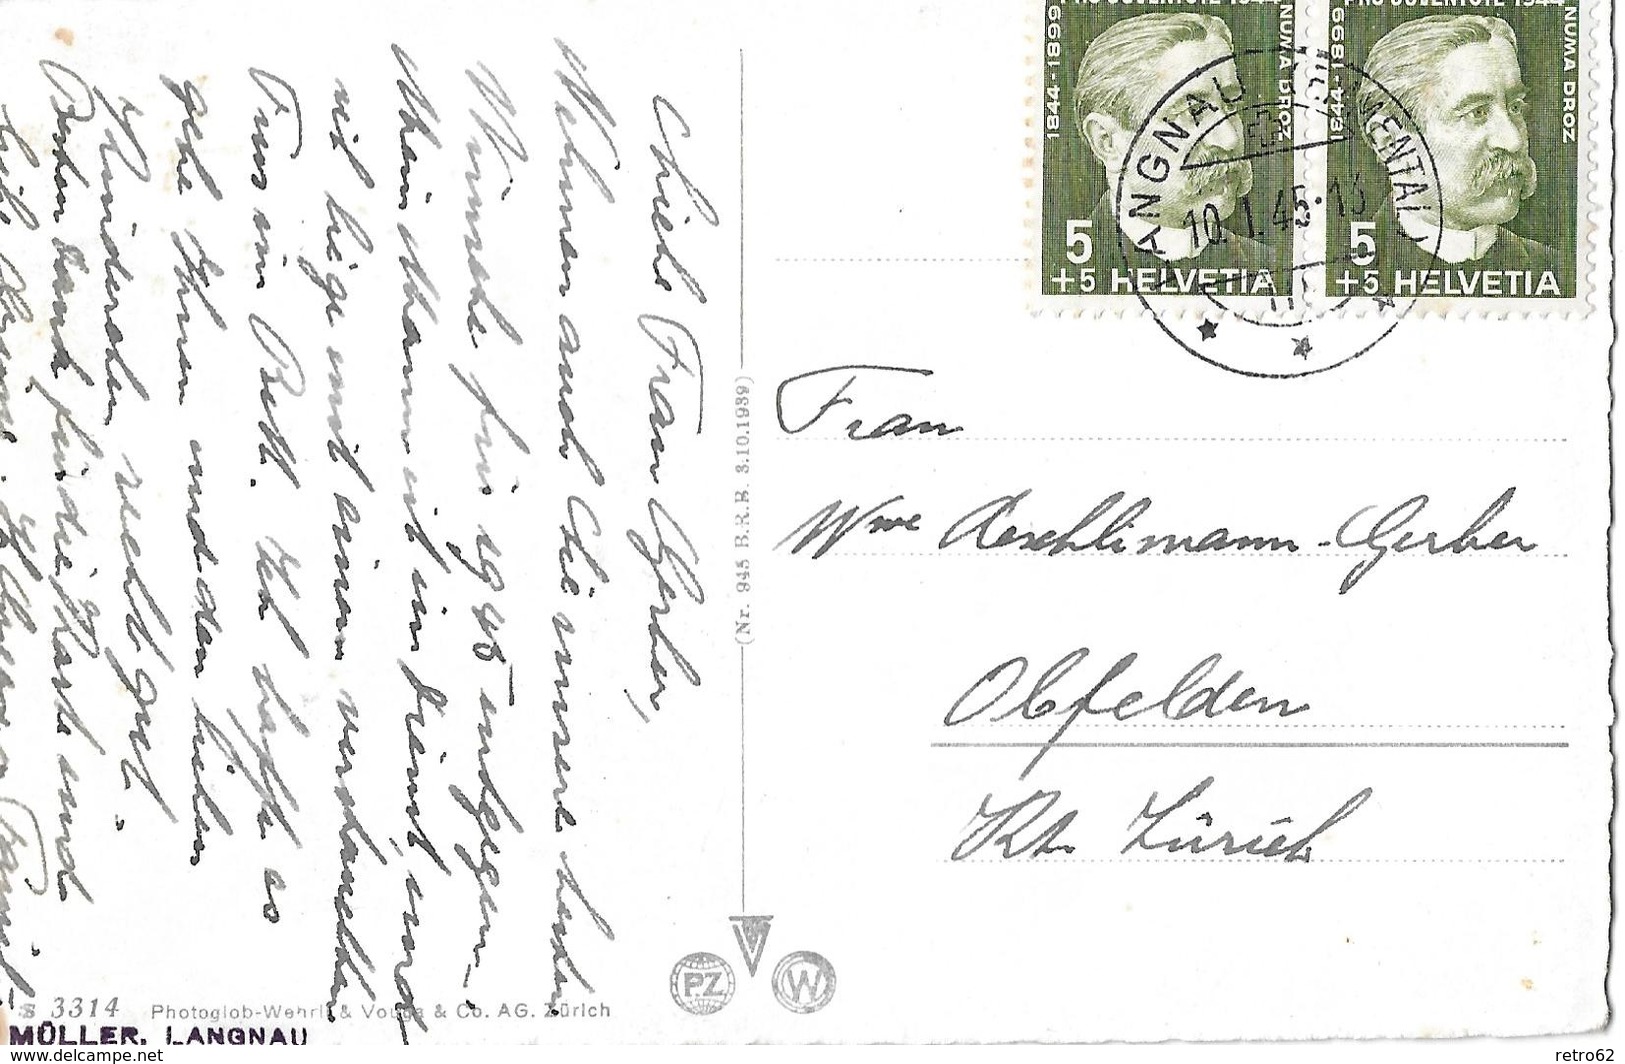 PRO JUVENTUTE 1944
1844-1899
NUMA DROZ
5
+5 HELVETIA
PRO JUVENTUTE 1944
1844-1899
NUMA DROZ
5
+5 HELVETIA
LANGNAU (EMMENTAL)
10.1.45.-13
Liebe Frau Gerber,
Nehmen auch Sie unsere besten
Wünsche für 1945 entgegen.
Mein Mann ist im Dienst, und
ich liege mit einem verstauchten
Fuss im Bett. Ich hoffe es
gehe Ihnen und den lieben
Kinderchen recht gut.
Besten Dank für die Karte und
liebe Grüsse
Frau
Wwe Aeschlimann-Gerber
Obfelden
Kt. Zürich
(Nr. 945 B.R.B. 3.10.1939)
PZ
W
S 3314 Photoglob-Wehrli & Vouga & Co. AG. Zürich
MÜLLER, LANGNAU
www.delcampe.net
retro62